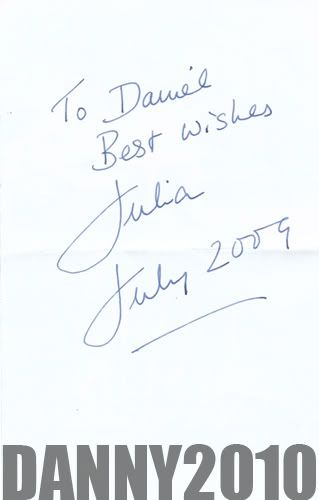 To Daniel
Best wishes
Julia
July 2009
DANNY2010